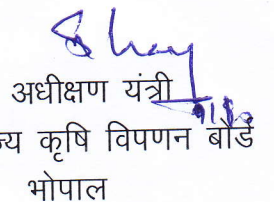 अधीक्षण यंत्री
कृषि विपणन बोर्ड
भोपाल